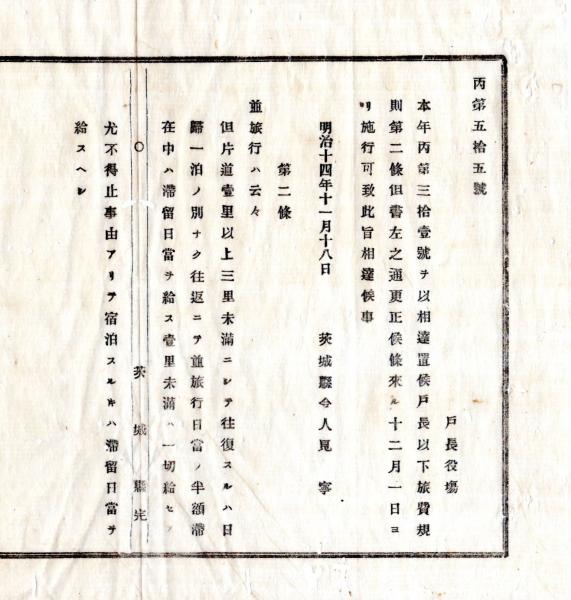 丙第五拾五號
戸長役塲
本年丙第三拾壹號ヲ以相達置候戸長以下旅費規
則第二條但書左之通更正候條來ル十二月一日ヨ
リ施行可致此旨相達候事
明治十四年十一月十八日　茨城縣令人見　寧
第二條
並旅行ハ云々
但片道壹里以上三里未滿ニシテ往復スルハ日
歸一泊ノ別ナク往返ニテ並旅行日當ノ半額滯
在中ハ滯留日當ヲ給ス壹里未滿ハ一切給セス
〇　茨城縣
尤不得止事由アリテ宿泊スルキハ滯留日當ヲ
給スヘシ